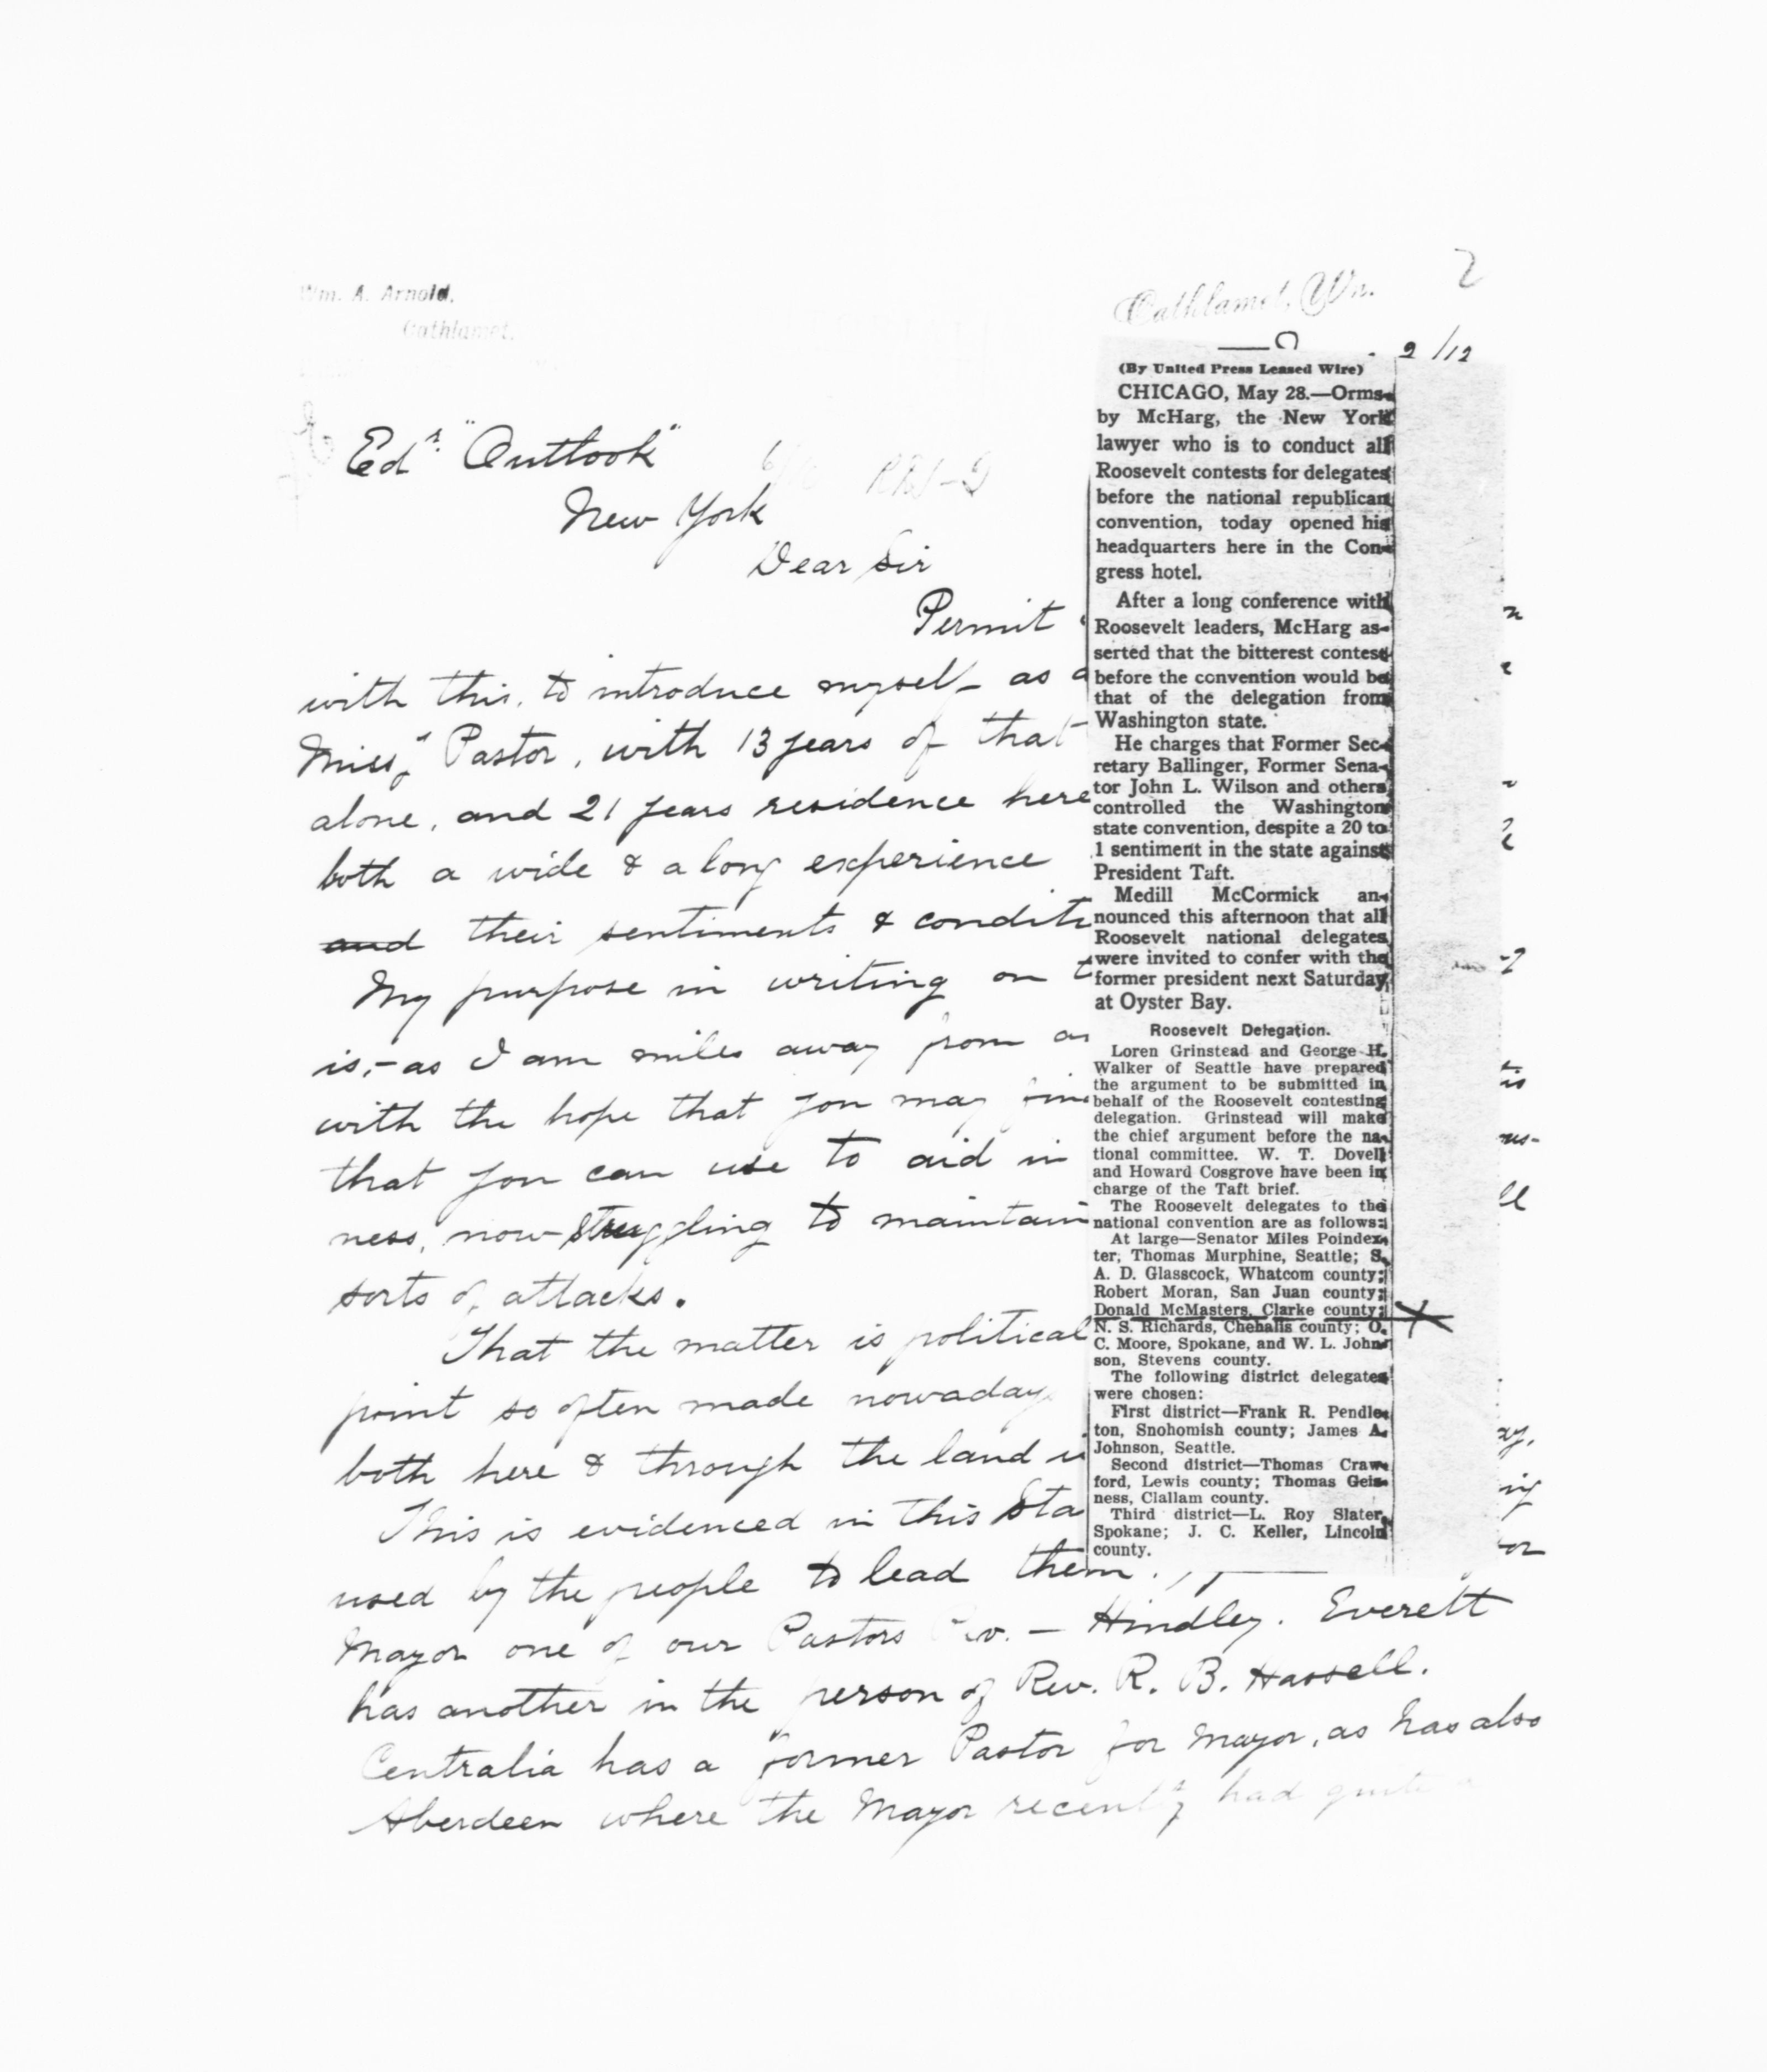 Wm. A. Arnold,
Cathlamet.
Cathlamet, Wn.
2
9/12
Edr "Outlook"
New York
Dear Sir
Permit
with this, to introduce myself as a
Missy Pastor, with 13 years of that
alone, and 21 years residence here
both a wide & a long experience
and their sentiments & condit
My purpose in writing on t
is,- as I am miles away from an
with the hope that you may fin
that you can use to aid in
ness, now struggling to maintain
sorts of attacks.
That the matter is political
point so often made nowaday
both here & through the land i
This is evidenced in this Sta
used by the people to lead them.
Mayor one of our Pastors Rev. — Hindley. Everett
has another in the person of Rev. R. B. Hassell.
Centralia has a former Pastor for Mayor, as has also
Aberdeen where the Mayor recently had quite
(By United Press Leased Wire)
CHICAGO, May 28.—Orms-
by McHarg, the New York
lawyer who is to conduct all
Roosevelt contests for delegates
before the national republican
convention, today opened his
headquarters here in the Con-
gress hotel.
After a long conference with
Roosevelt leaders, McHarg as-
serted that the bitterest contest
before the convention would be
that of the delegation from
Washington state.
He charges that Former Sec-
retary Ballinger, Former Sena-
tor John L. Wilson and others
controlled the Washington
state convention, despite a 20 to
1 sentiment in the state against
President Taft.
Medill McCormick an-
nounced this afternoon that all
Roosevelt national delegates
were invited to confer with the
former president next Saturday
at Oyster Bay.
Roosevelt Delegation.
Loren Grinstead and George H.
Walker of Seattle have prepared
the argument to be submitted in
behalf of the Roosevelt contesting
delegation. Grinstead will make
the chief argument before the na-
tional committee. W. T. Dovell
and Howard Cosgrove have been in
charge of the Taft brief.
The Roosevelt delegates to the
national convention are as follows:
At large—Senator Miles Poindex-
ter, Thomas Murphine, Seattle; S.
A. D. Glasscock, Whatcom county;
Robert Moran, San Juan county;
Donald McMasters, Clarke county;
N. S. Richards, Chehalis county; O.
C. Moore, Spokane, and W. L. John-
son, Stevens county.
The following district delegates
were chosen:
First district—Frank R. Pendle-
ton, Snohomish county; James A.
Johnson, Seattle.
Second district—Thomas Craw-
ford, Lewis county; Thomas Geis-
ness, Clallam county.
Third district—L. Roy Slater,
Spokane; J. C. Keller, Lincoln
county.